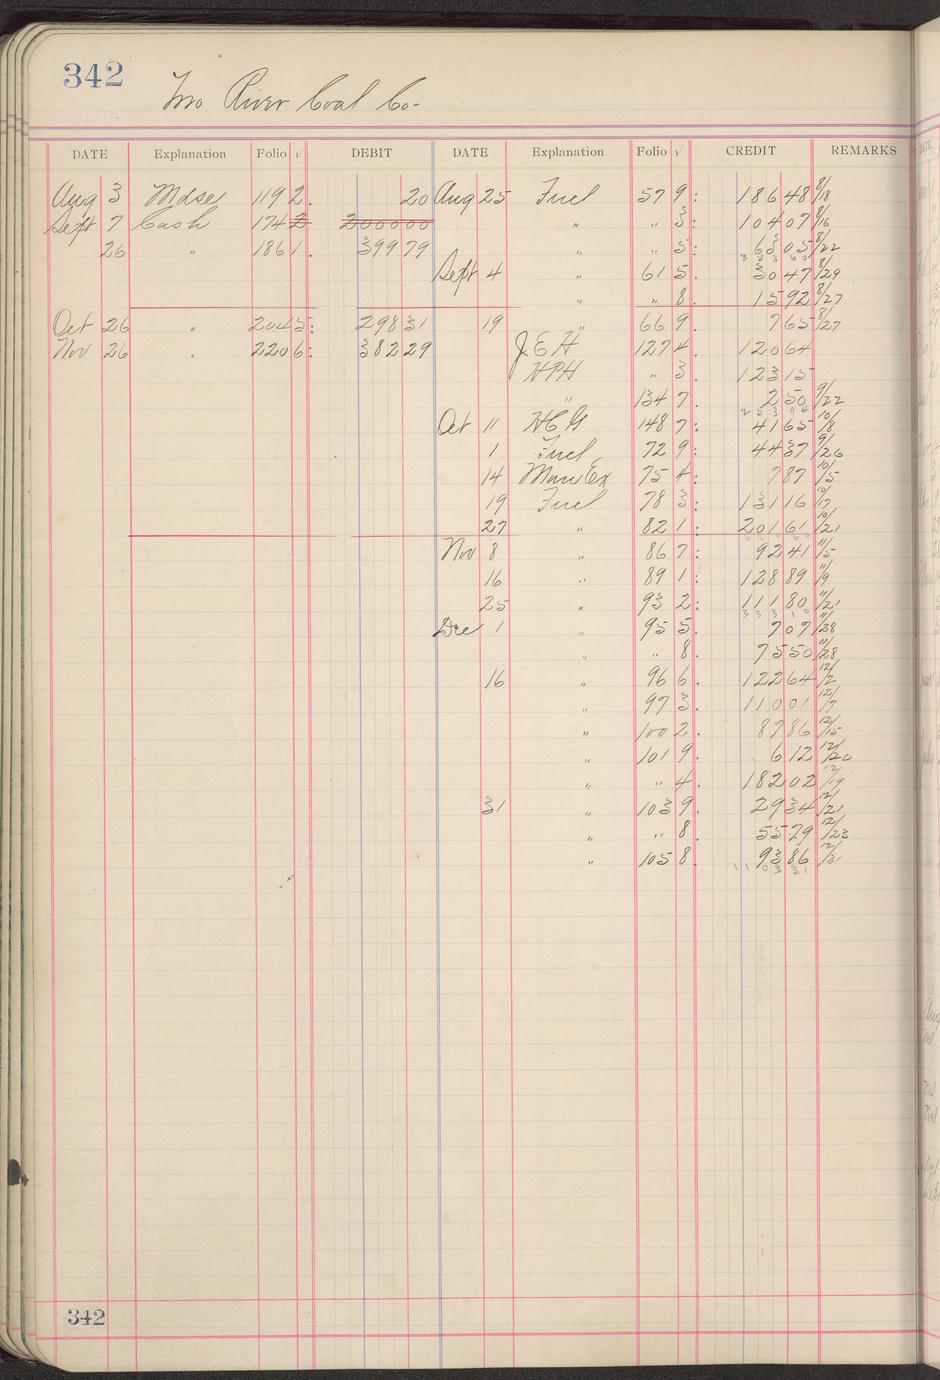 342
River Coal Co-
DATE Explanation Folio √ DEBIT DATE Explanation Folio √ CREDIT REMARKS
Aug 3 Mdse 119 2. 20 Aug 25 Fuel 57 9: 186 48 8/18
Sept 7 Cash 174 2 2000 00 " " 3: 104 07 8/16
26 " 186 1. 399 79 " " 5: 63 05 8/22
Sept 4 " 61 5. 30 47 8/29
" " 8. 15 92 8/27
Oct 26 " 204 5: 298 31 19 " 66 9. 7 65 8/27
Nov 26 " 220 6: 382 29 J E H 127 4. 120 64
HPH " 3. 123 15
" 134 7. 2 50 9/22
Oct 11 H C G 148 7: 41 65 10/8
1 Fuel 72 9: 44 37 9/26
14 Man Ex 75 4: 7 87 10/5
19 Fuel 78 3: 131 16 10/17
27 " 82 1: 201 61 10/21
Nov 8 " 86 7: 92 41 11/5
16 " 89 1: 128 89 11/9
25 " 93 2: 111 80 11/21
Dec 1 " 95 5. 7 07 11/28
" " 8. 75 50 11/28
16 " 96 6. 122 64 12/2
" 97 3. 110 01 12/7
" 100 2. 87 86 12/15
" 101 9. 6 12 12/20
" " 4. 182 02 12/19
31 " 103 9. 29 34 12/21
" " 8. 55 79 12/23
" 105 8. 93 86 12/31
342